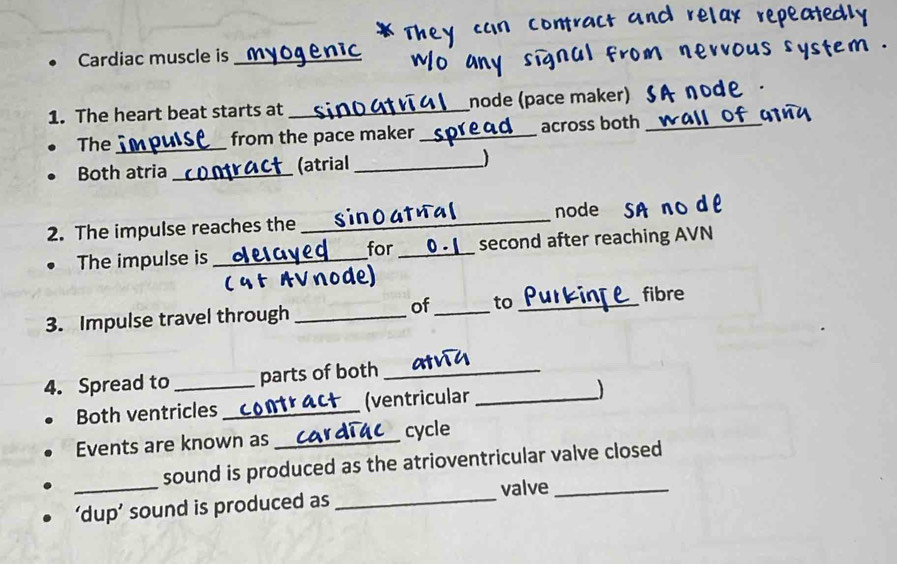 * They can contract and relax repeatedly
• Cardiac muscle is myogenic w/o any signal from nervous system.
1. The heart beat starts at sinoatrial node (pace maker) SA node.
• The impulse from the pace maker spread across both wall of atria
• Both atria contract (atrial __________)
2. The impulse reaches the sinoatrial node SA node
• The impulse is delayed for 0.1 second after reaching AVN
(at AV node)
3. Impulse travel through ________ of ____ to Purkinje fibre
4. Spread to ______ parts of both atria
• Both ventricles contract (ventricular _________)
• Events are known as cardiac cycle
• ______ sound is produced as the atrioventricular valve closed
• ‘dup’ sound is produced as ____________ valve ________